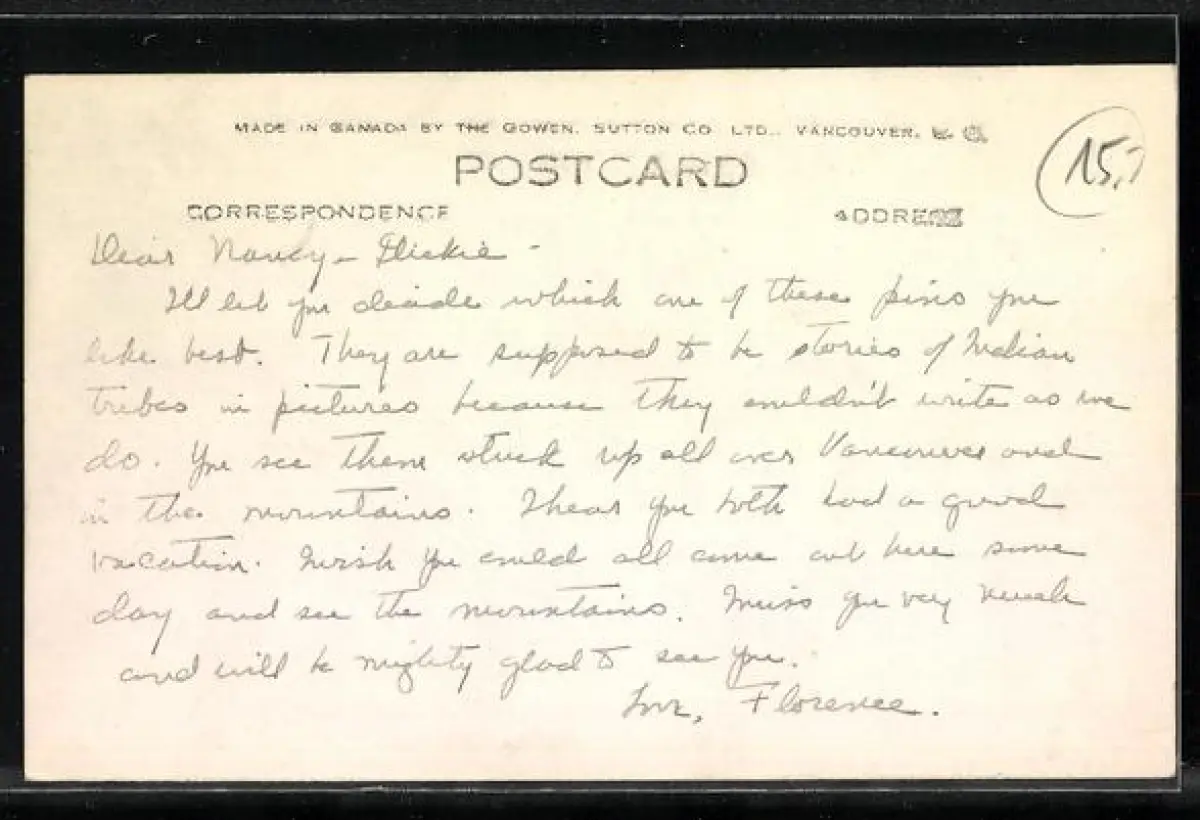 MADE IN CANADA BY THE GOWEN, SUTTON CO. LTD., VANCOUVER, B. C.
POSTCARD
15,-
CORRESPONDENCE ADDRESS
Dear Nancy - Dickie -
I'll let you decide which one of these pins you
like best. They are supposed to be stories of Indian
tribes in pictures because they couldn't write as we
do. You see them stuck up all over Vancouver and
in the mountains. I hear you both had a good
vacation. I wish you could all come out here some
day and see the mountains. I miss you very much
and will be mighty glad to see you.
Love, Florence.